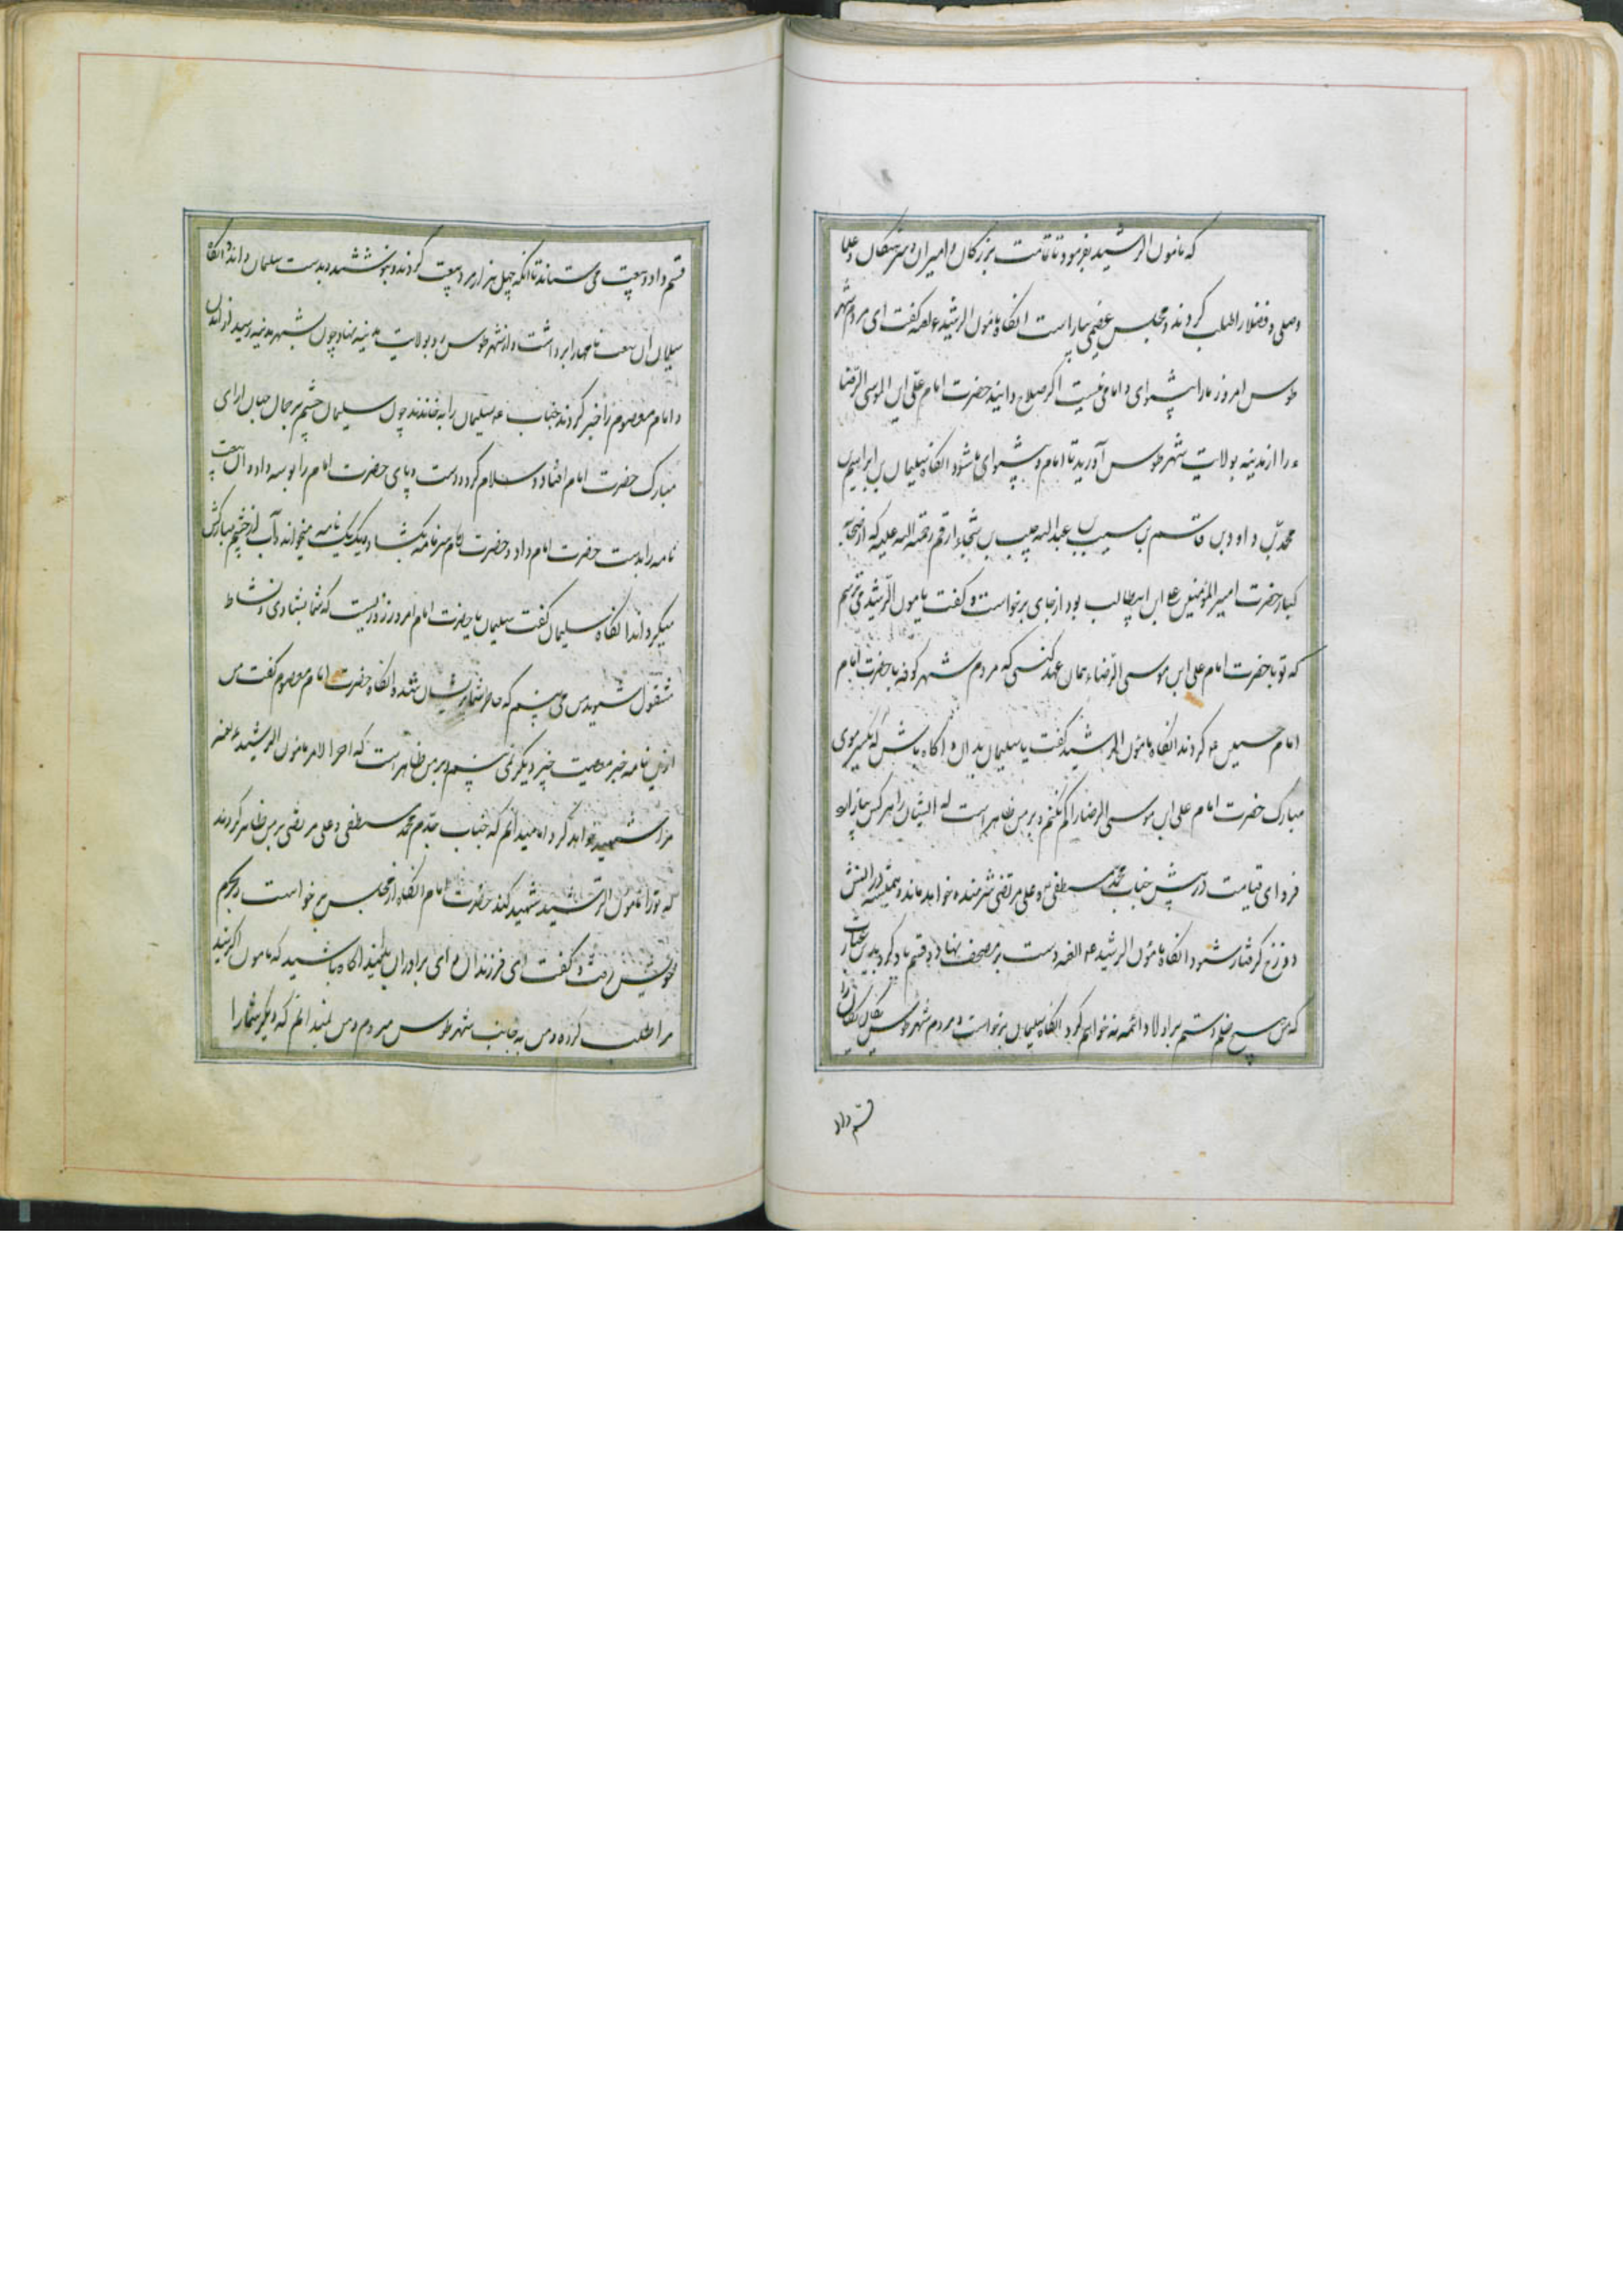 که مامون الرشید بفرمود تا تمامت بزرکان و امیران و سرهنکان و علما
و صلی و فضلا را طلب کردند و مجلس عضیمی بیاراست انکاه مامون الرشید ع لعنه کفت ای مردم شهر
طوس امروز ما را پیشوای و امامی نیست اکر صلاح دانید حضرت امام علی ابن الموسی الرضا
ء را از مدینه بولایت شهر طوس آورید تا امام و پیشوای ما شود انکاه سلیمان بن ابراهیم بن
محمد بن داود بن قاسم بن مسیب بن عبدالله حبیب بن شجاء ارقم رحمته الله علیه که از صحابه
کبار حضرت امیر المؤمنین علی ابن ابیطالب بود از جای برخواست و کفت یا مون الرشید می ترسم
که تو با حضرت امام علی ابن موسی الرضاء همان عهد کنی که مردم شهر کوفه با حضرت امام
امام حسین ء کردند انکاه مامون الرشید کفت یا سلیمان بدان و اکاه باش که یکسر موی
مبارک حضرت امام علی ابن موسی الرضا را کم نکنم و بر من ظاهر است که ایشان را هر کس بیازارد
فردای قیامت در پیش جناب محمد مسطفی و علی مرتضی شرمنده خواهد ماند و همیشه در اتش
دوزخ کرفتار شود انکاه مامون الرشید ع العنه دست بر مصحف نهاد و قسم یاد کرد بدین عبارت
که من هیچ ضلم و ستم بر اولاد ائمه نه خواهم کرد انکاه سلیمان برخواست و مردم شهر طوس یکان یکان را
قسم داد
قسم داد و بیعت می ستاند تا انکه چهل هزار مرد بیعت کردند و بنوشتند و بدست سلیمان دادند انکاه
سلیمان ان بیعت نامها را برداشت و از شهر طوس رو بولایت مدینه نهاد چون بشهر مدینه رسید فرزندان
و امام معصوم را خبر کردند جناب ء سلیمان را به خاندند چون سلیمان چشم بر جمال جهان ارای
مبارک حضرت امام افتاد و سلام کرد و دست و پای حضرت امام را بوسه داد و ان بیعت
نامه را بدست حضرت امام داد و حضرت امام سر نامه بکشاد و یک یک نامه میخواند و آب از چشم مبارکش
میکرداند انکاه سلیمان کفت سلیمان یا حضرت امام امروز روزیست که شما بشادی و نشاط
مشقول شوید من می بینم که خاطر شما پریشان شده انکاه حضرت امام معصوم کفت من
ازین نامه خبر معصیت خیر دیکر نمی بینم و بر من ظاهر است که اخر الامر مامون الرشید ع لعنه
مرا شهید خواهد کرد اما میدانم که جناب جدم محمد مسطفی و علی مرتضی بر من ظاهر کردند
که تو را مامون الرشید شهید کند حضرت امام انکاه از مجلس بر خواست و بحرم
خویش رفت و کفت ای فرزندان و ای برادران بدانید و اکاه باشید که مامون الرشید
مرا طلب کرده و من به جانب شهر طوس میروم و من نمیدانم که دیکر شما را